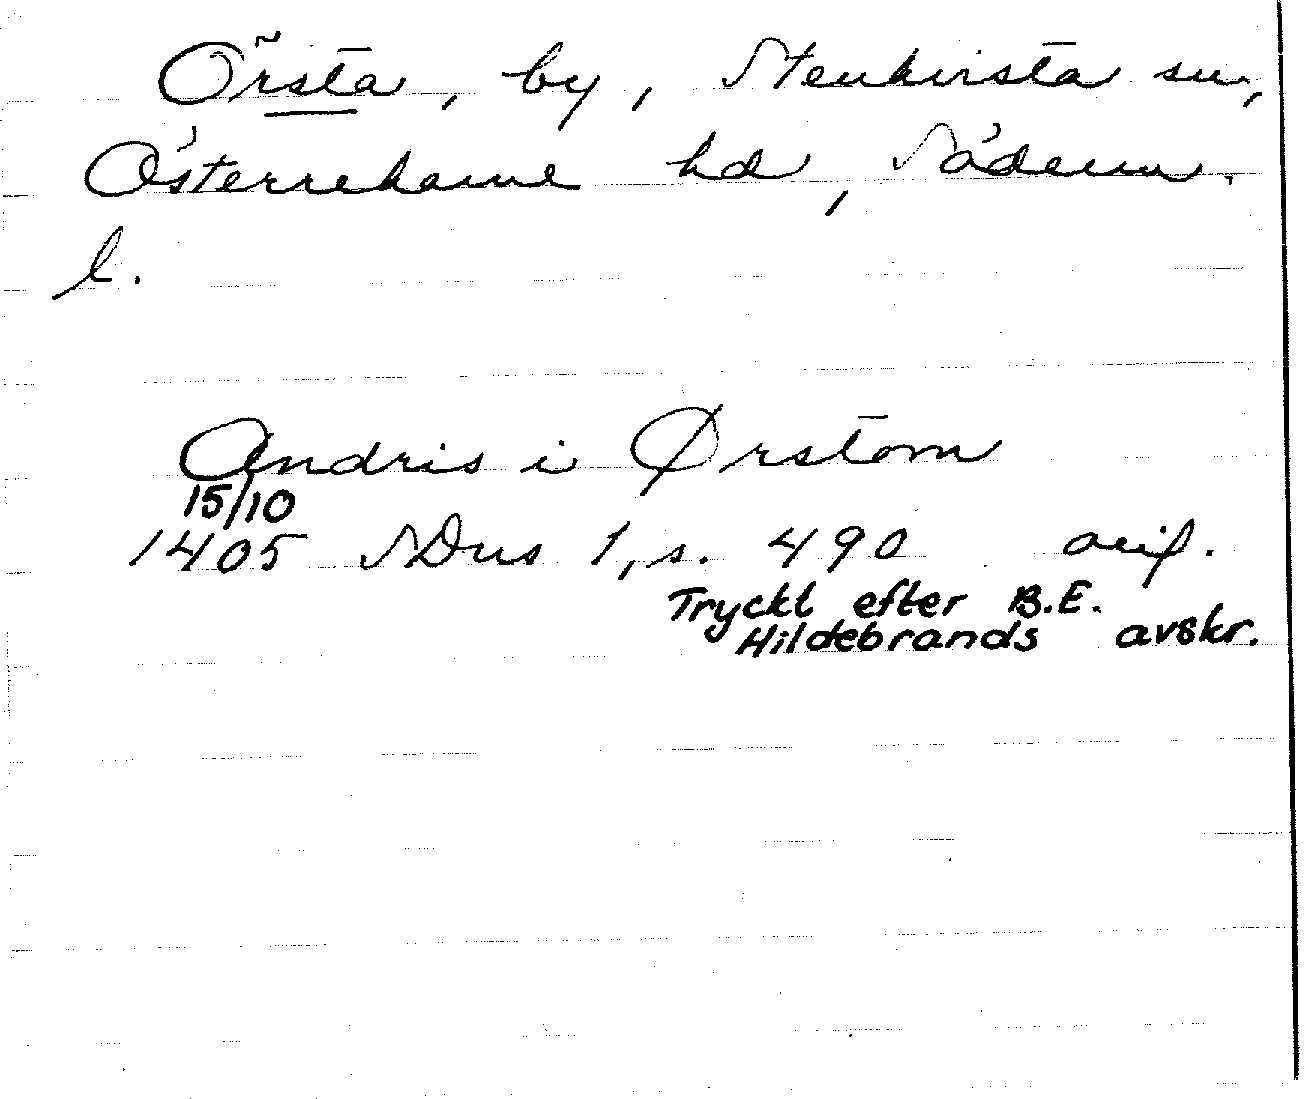 Örsta, by, Stenkvista sn,
Österrekarne hd, Söderm.
l.
Andris i Ørstom
15/10
1405 SDns 1, s. 490 orig.
Tryckt efter B.E.
Hildebrands avskr.